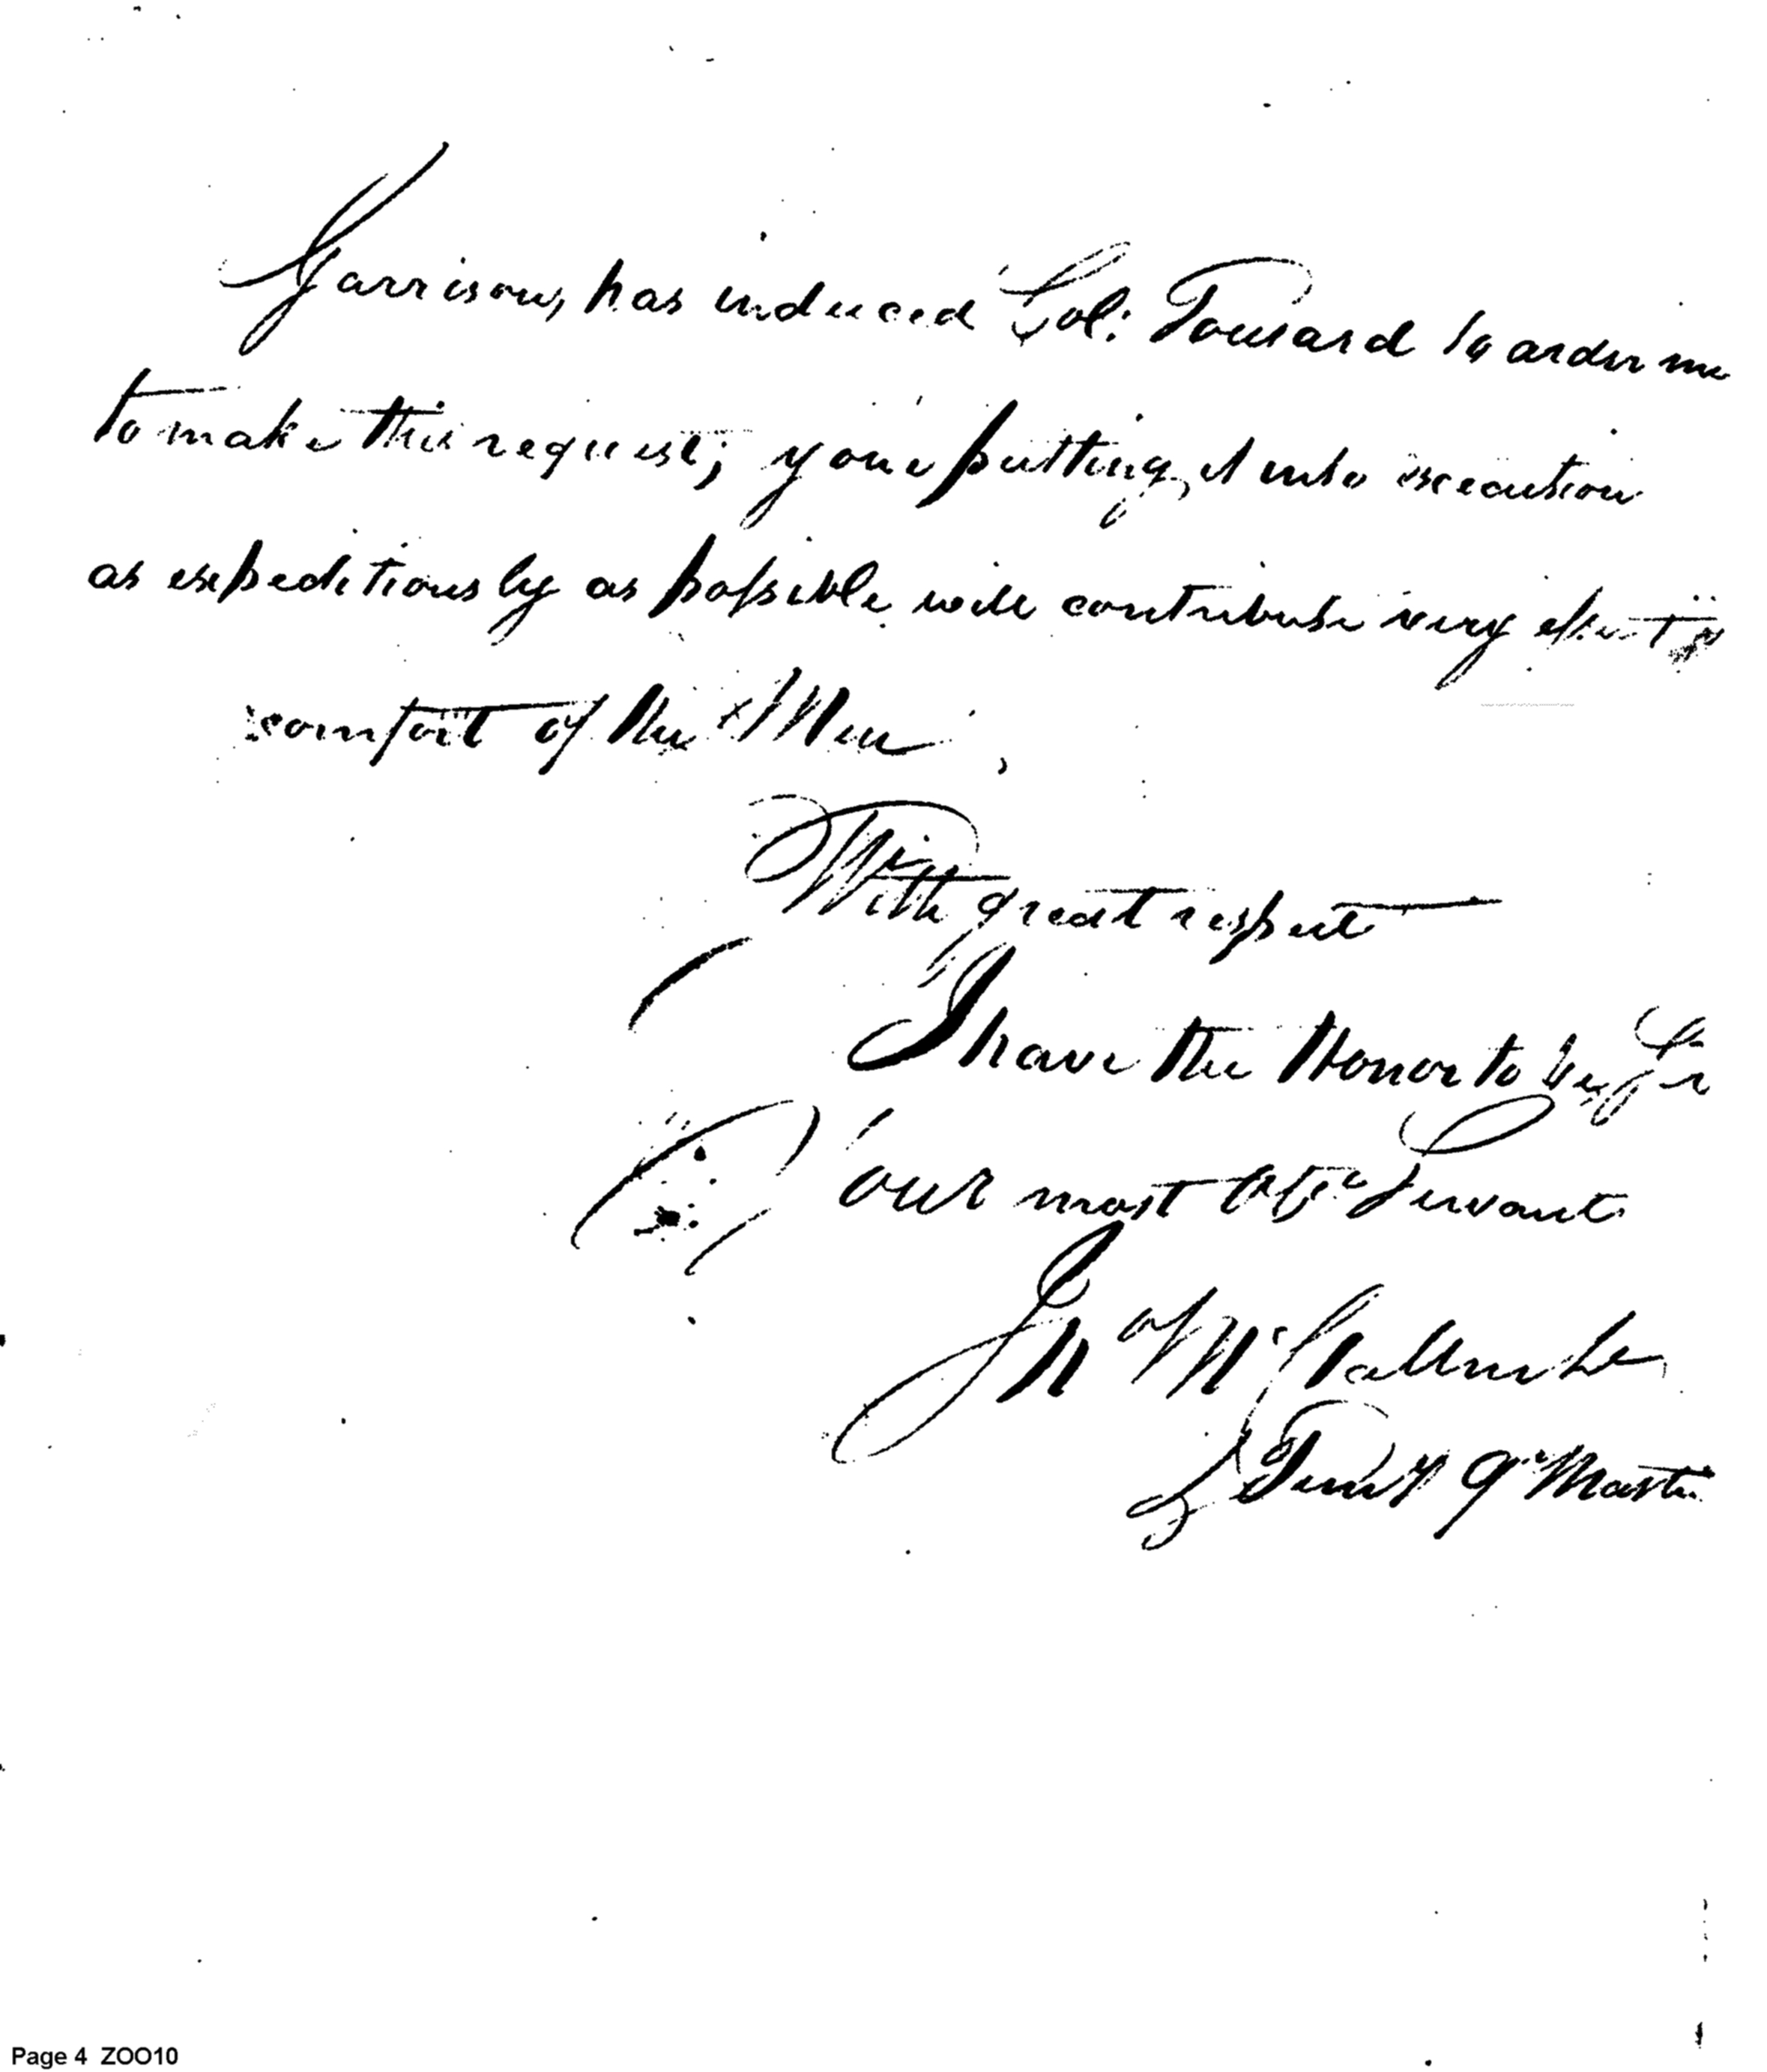 Garrison, has induced Col. Tousard to order me
to make this request; your putting it into execution
as expeditiously as possible will contribute very
comfort of the Men
With great respect
I have the Honor to be Sir
Your most Obt Servant
Temy Qr Master
Page 4 ZOO10